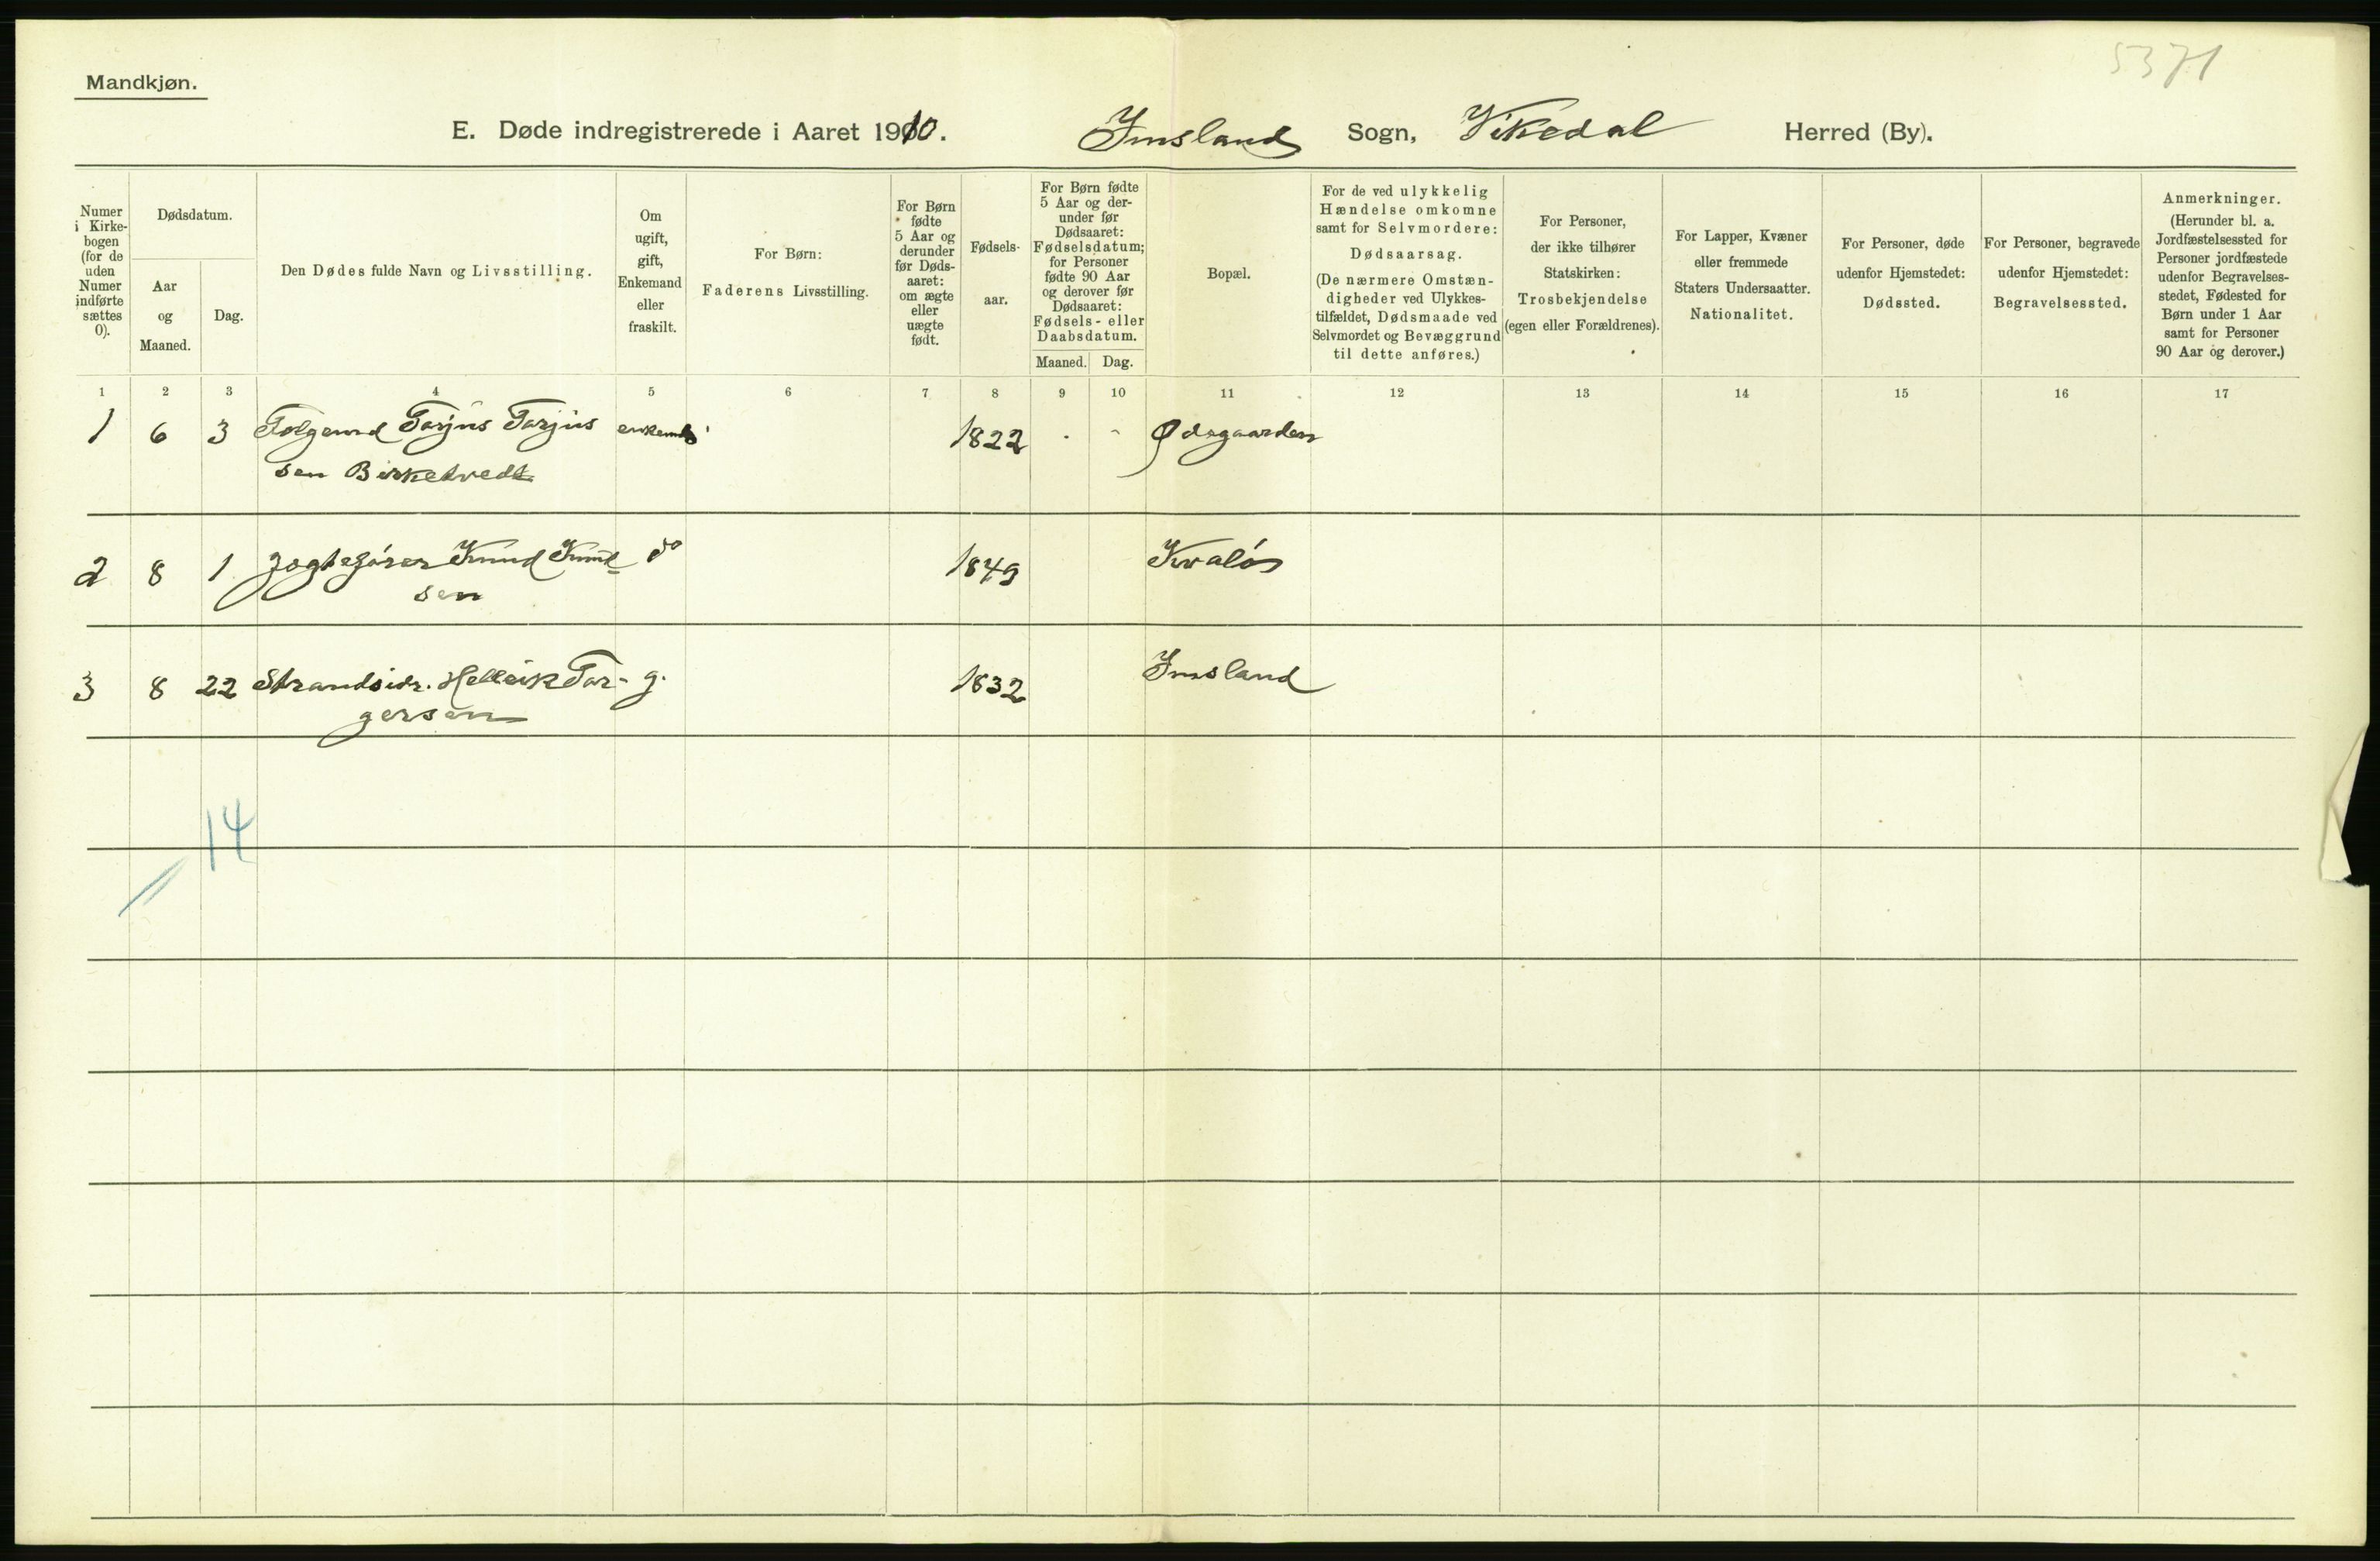 5371
Mandkjøn.
E. Døde indregistrerede i Aaret 1910. Imsland Sogn, Vikedal Herred (By).
Numer i Kirkebogen (for de uden Numer indførte sættes 0).
Dødsdatum.
Aar og Maaned.
Dag.
Den Dødes fulde Navn og Livsstilling.
Om ugift, gift, Enkemand eller fraskilt.
For Børn: Faderens Livsstilling.
For Børn fødte 5 Aar og derunder før Dødsaaret: om ægte eller uægte født.
Fødselsaar.
For Børn fødte 5 Aar og derunder før Dødsaaret: Fødselsdatum; for Personer fødte 90 Aar og derover før Dødsaaret: Fødsels- eller Daabsdatum.
Maaned. Dag.
Bopæl.
For de ved ulykkelig Hændelse omkomne samt for Selvmordere: Dødsaarsag. (De nærmere Omstændigheder ved Ulykkestilfældet, Dødsmaade ved Selvmordet og Bevæggrund til dette anføres.)
For Personer, der ikke tilhører Statskirken: Trosbekjendelse (egen eller Forældrenes).
For Lapper, Kvæner eller fremmede Staters Undersaatter. Nationalitet.
For Personer, døde udenfor Hjemstedet: Dødssted.
For Personer, begravede udenfor Hjemstedet: Begravelsessted.
Anmerkninger. (Herunder bl. a. Jordfæstelsessted for Personer jordfæstede udenfor Begravelsesstedet, Fødested for Børn under 1 Aar samt for Personer 90 Aar og derover.)
1 2 3 4 5 6 7 8 9 10 11 12 13 14 15 16 17
1 6 3 Tarjus Tarjus 1822 Ødegaarden
sen Birketvedt
2 8 1 Jagtefører Knud Knud do 1849 Kvaløs
sen
3 8 22 Strandsidr. Helleik Tor- g. 1832 Imsland
gersen
14